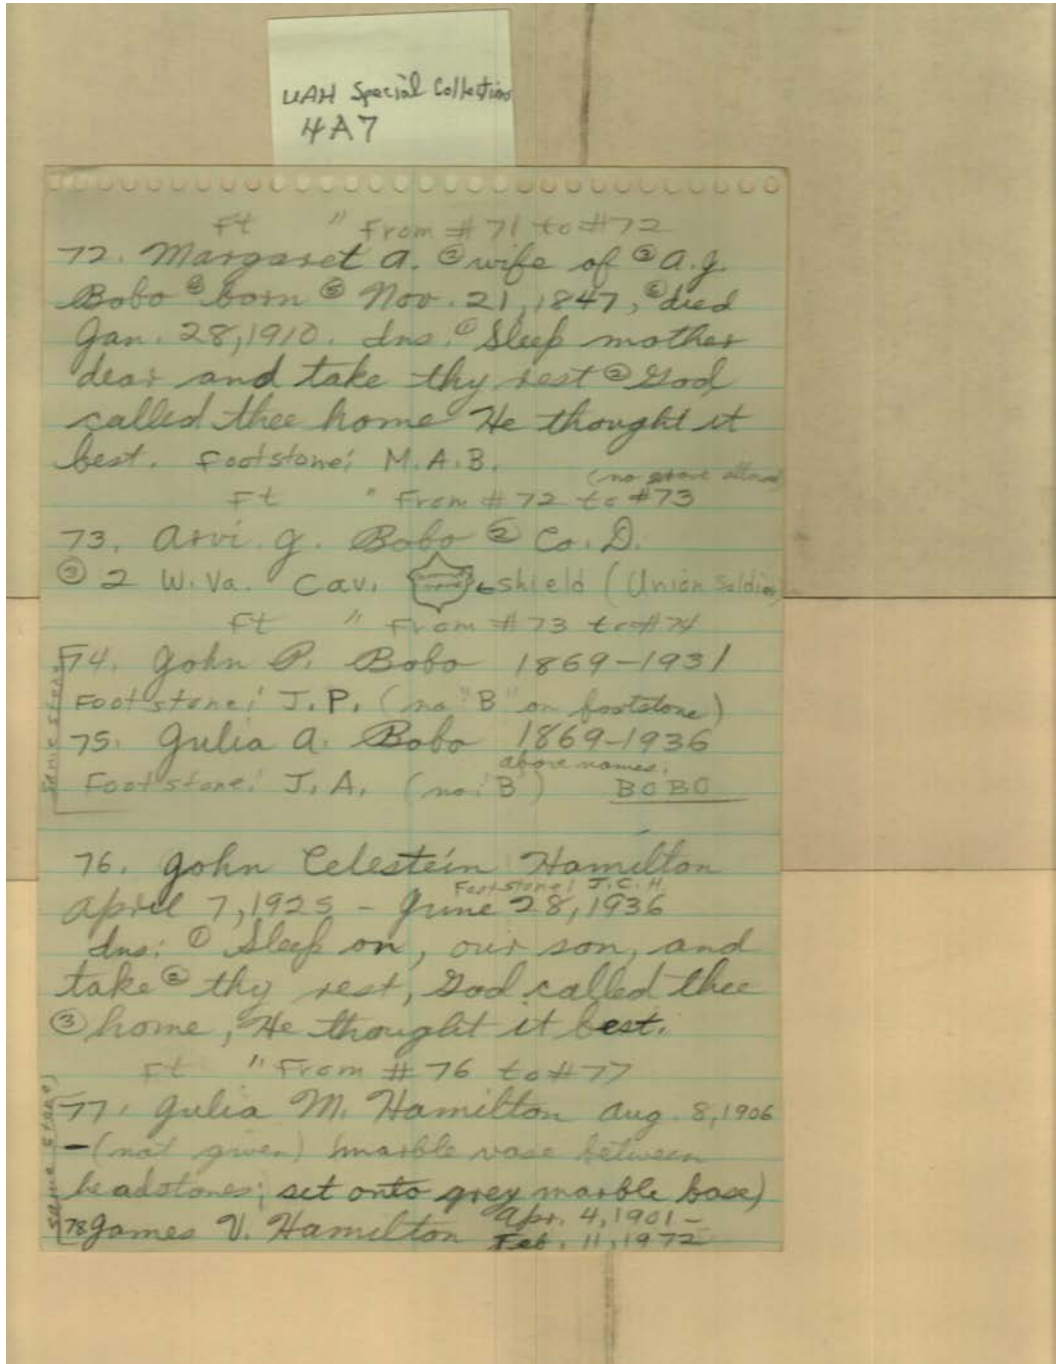 UAH Special Collections
4A7
Ft " From #71 to #72
72. Margaret A. ② wife of ③ A.J.
Bobo ④ born ⑤ Nov. 21, 1847, ⑥ died
Jan. 28, 1910. Ins. ① Sleep mother
dear and take thy rest ② God
called thee home He thought it
best. Footstone: M.A.B.
(no stone
Ft " From #72 to #73
73. Arvi. G. Bobo ② Co. D.
③ 2 W. Va. Cav. shield (Union Soldier)
Ft " From #73 to #74
74. John P. Bobo 1869-1931
Footstone: J.P. (no "B" on footstone)
75. Julia A. Bobo 1869-1936
above names:
Footstone: J.A. (no "B") BOBO
same stone
76. John Celestein Hamilton
Footstone: J.C.H.
April 7, 1925 - June 28, 1936
Ins: ① Sleep on, our son, and
take ② thy rest, God called thee
③ home, He thought it best.
Ft " From #76 to #77
77. Julia M. Hamilton Aug. 8, 1906
- (not given) (marble vase between
headstones; set onto grey marble base)
78 James V. Hamilton Apr. 4, 1901 -
Feb. 11, 1972
same stone)